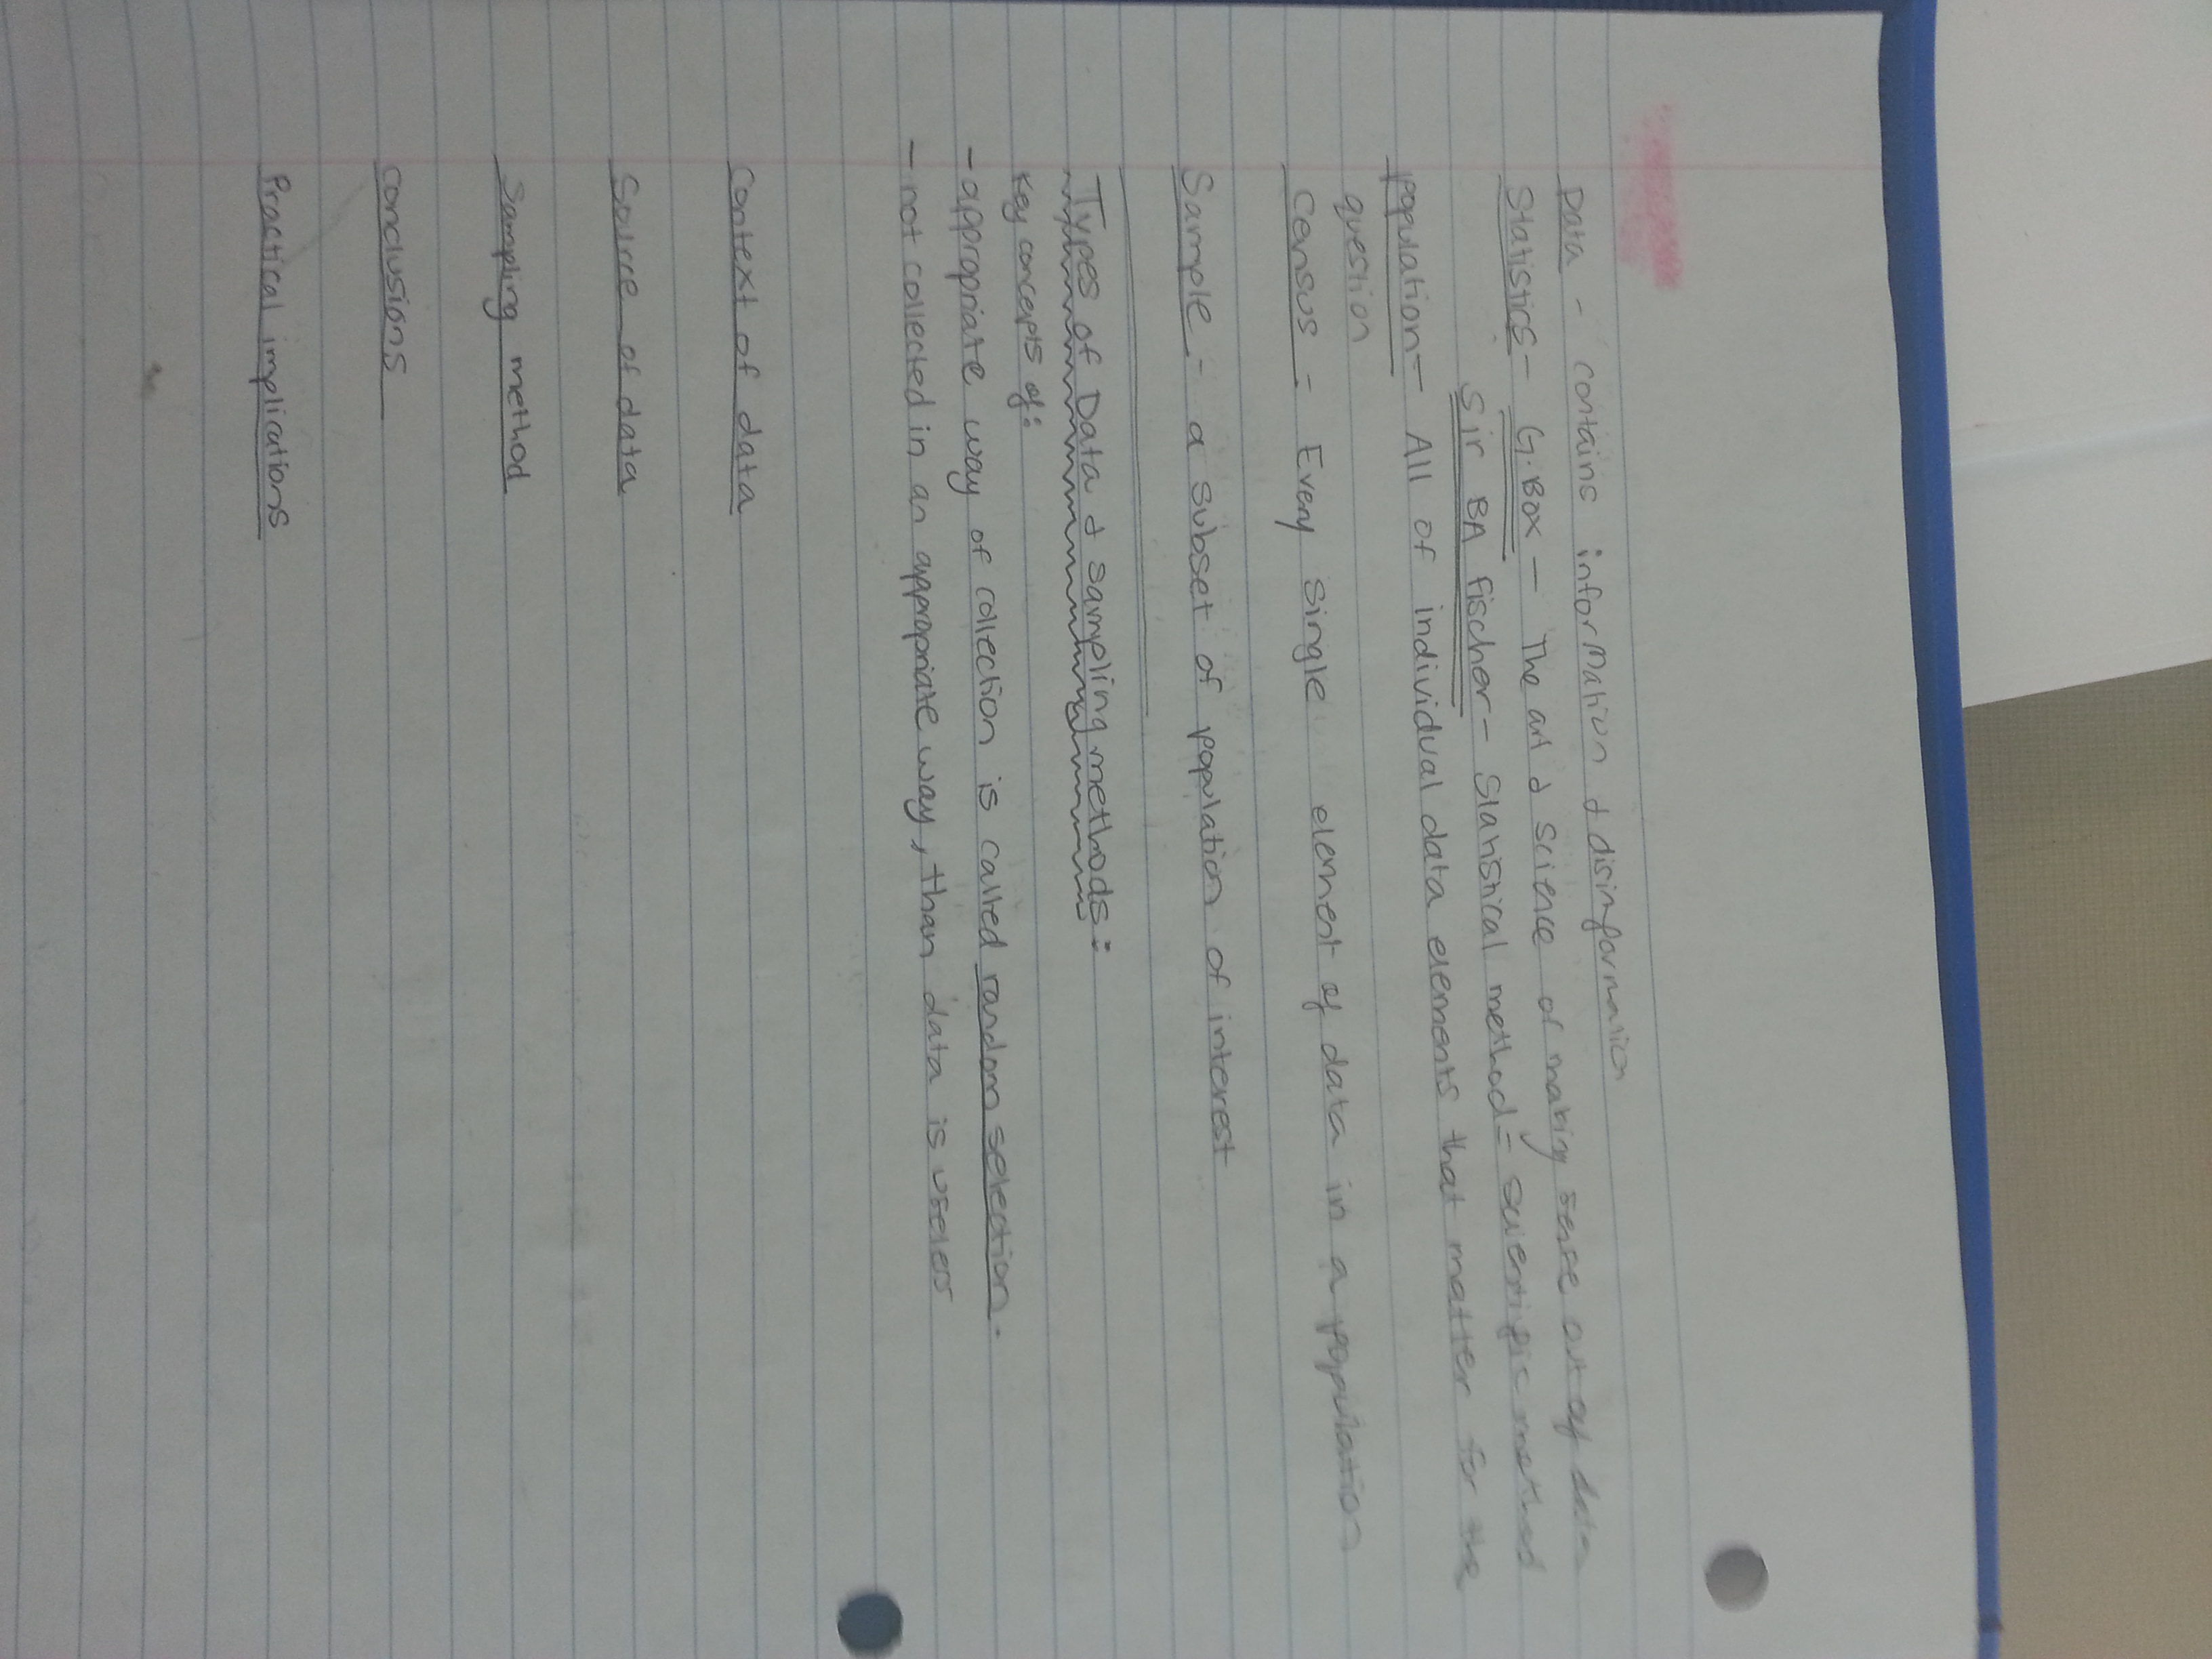 Data - contains information & disinformation
Statistics - G. Box - The art & science of making sense out of data
Sir BA fischer - Statistical method = scientific method
Population - All of individual data elements that matter for the
question
Census - Every single element of data in a population
Sample - a subset of population of interest
Types of Data & sampling methods:
Key concepts of:
- appropriate way of collection is called random selection.
- not collected in an appropriate way, than data is useless
Context of data
Source of data
Sampling method
Conclusions
Practical implications